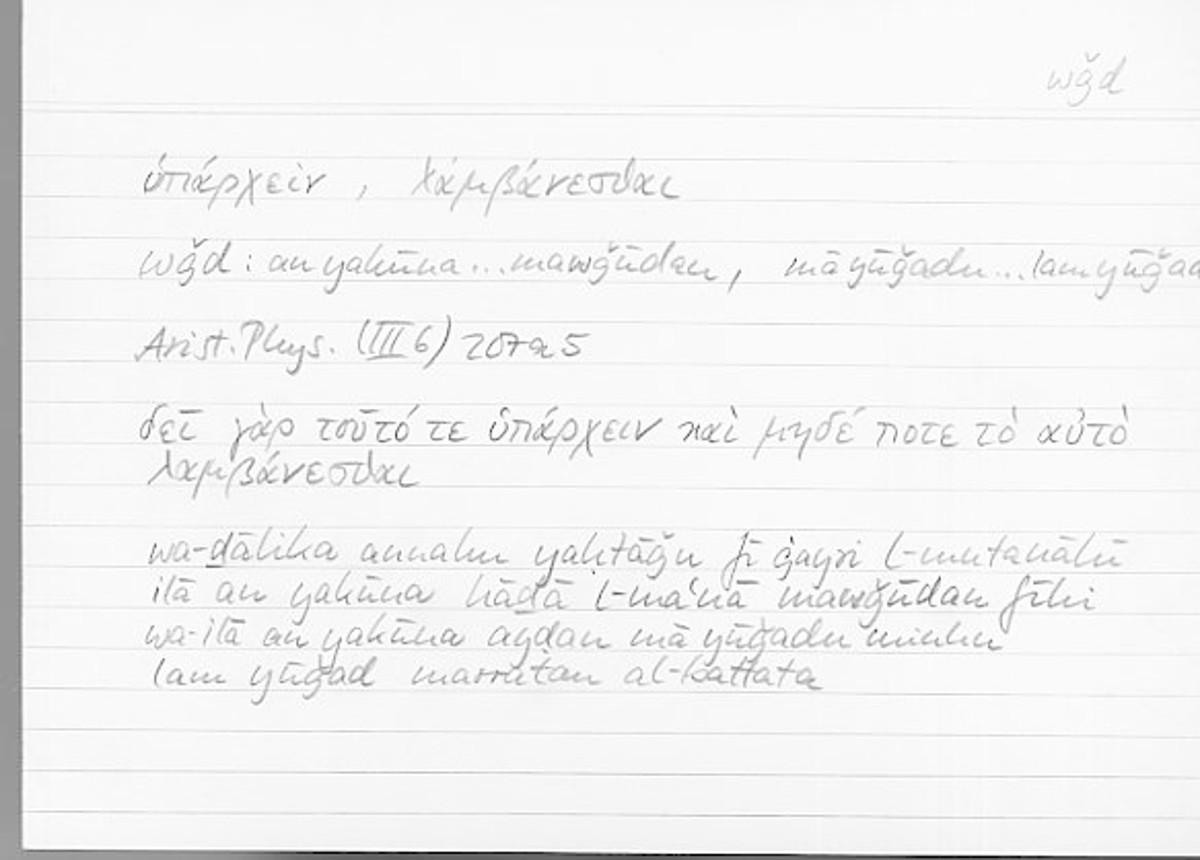 wǧd
ὑπάρχειν , λαμβάνεσθαι
wǧd : an yakūna ... mawǧūdan, mā yūǧadu ... lam yūǧad
Arist. Phys. (III 6) 207a5
δεῖ γὰρ τοῦτό τε ὑπάρχειν καὶ μηδέ ποτε τὸ αὐτὸ
λαμβάνεσθαι
wa-ḏālika annahu yaḥtāǧu fī ġayri l-mutanāhī
ilā an yakūna hāḏā l-maʿnā mawǧūdan fīhi
wa-ilā an yakūna ayḍan mā yūǧadu minhu
lam yūǧad marratan al-battata